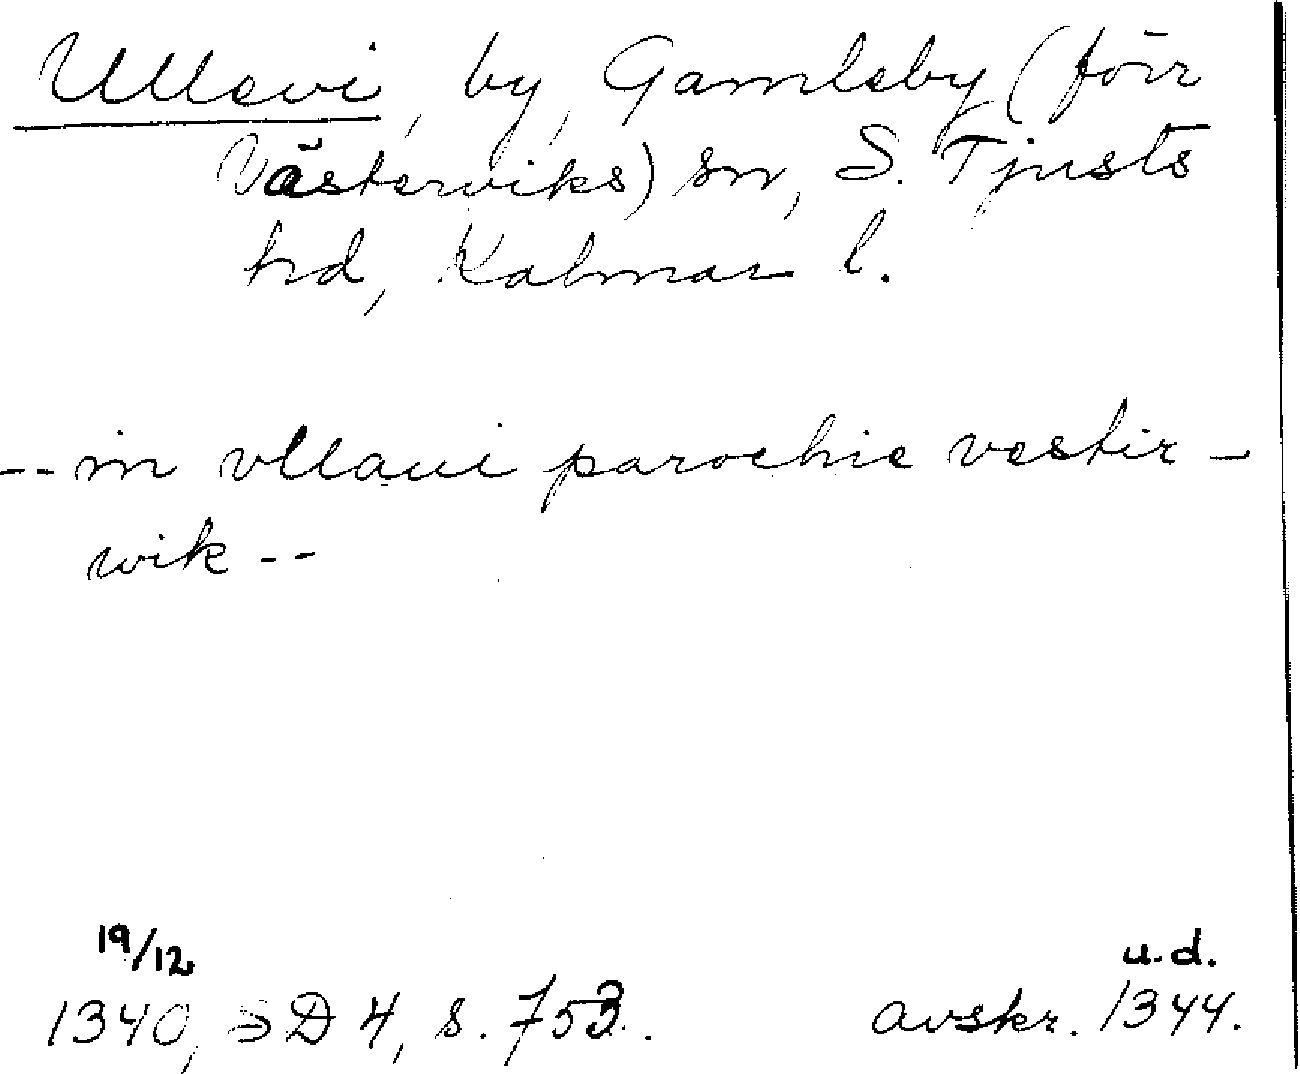 Ullevi, by, Gamleby (förr
Västerviks) sn, S. Tjusts
hd, Kalmar l.
-- in vllaui parochie vestir-
wik --
19/12
1340, SD 4, s. 753.
u.d.
avskr. 1344.